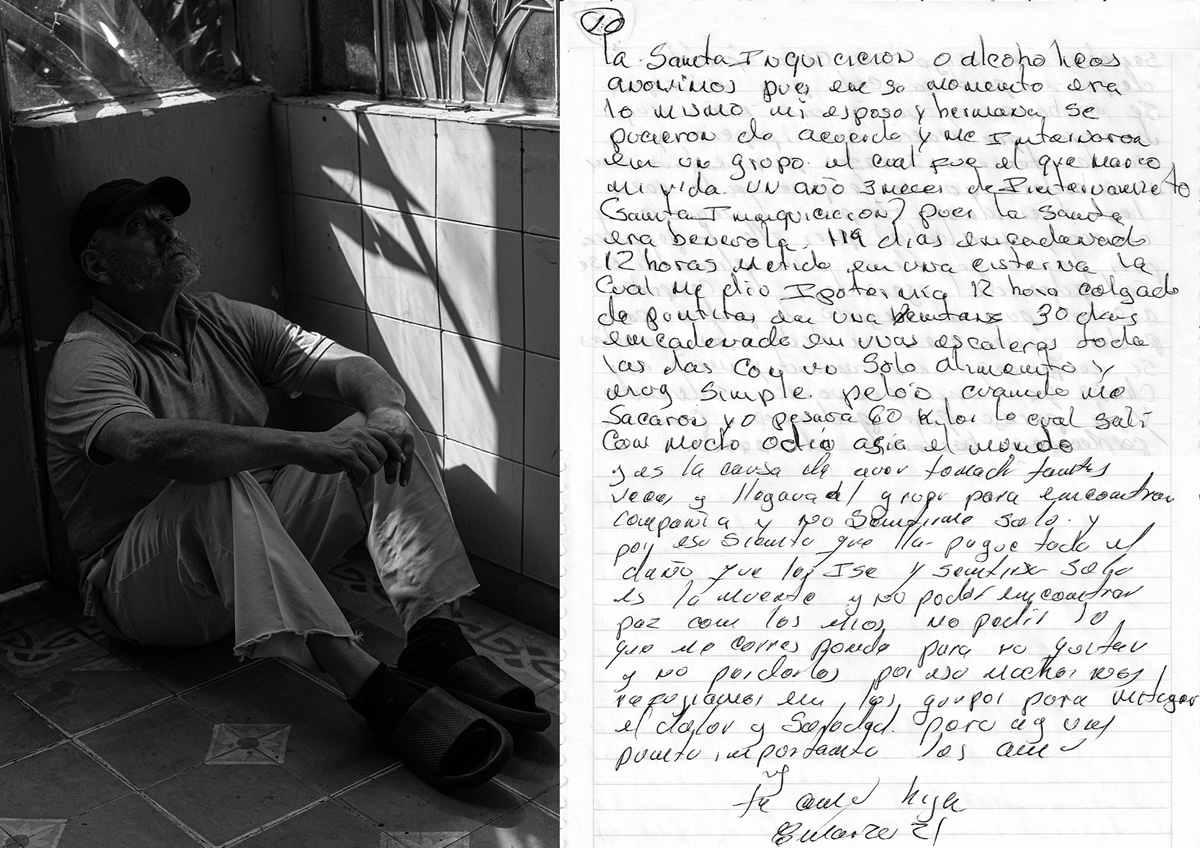 10
la Santa Inquicicion o alcoholicos
anonimos pues en so momento era
lo mismo mi esposo y hermana se
pucieron de acuerdo y me Internaron
en un grupo el cual fue el que marco
mi vida un año 3 meces de
(Santa pues la Santa
era benevola, 119 dias encadenado
12 horas metido en una cisterna la
cual me dio Ipotermia 12 hora colgado
de puntitas en una 30 dias
encadenado en unas escaleras toda
las das con un solo alimento y
simple cuando me
sacaron yo pesava 60 kilos lo cual sali
con mucho odio asia el mundo
y es la causa de aver tantas
veces y llegava al grupo para encontrar
compania y no sentirme solo y
por eso siento que pague todo el
daño que les Ise y solo
es la muerte y no poder encontrar
paz con los mios no pedir lo
que me corresponde para no
y no perderlos por eso muchas veces
en los grupos para mitigar
el dolor y para
punto importante los amo
te amo hija